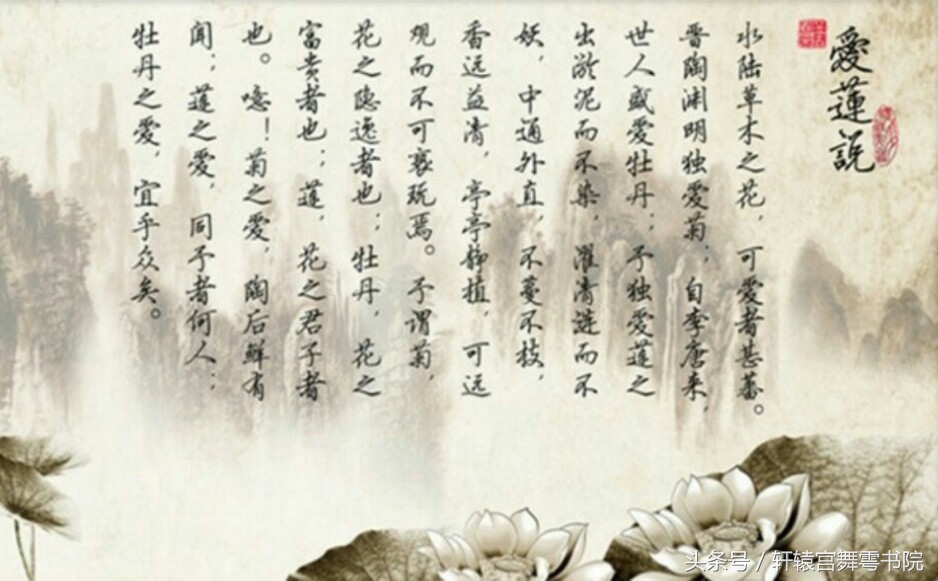 愛蓮説
水陆草木之花，可爱者甚蕃。
晋陶渊明独爱菊，自李唐来，
世人盛爱牡丹；予独爱莲之
出淤泥而不染，濯清涟而不
妖，中通外直，不蔓不枝，
香远益清，亭亭静植，可远
观而不可亵玩焉。予谓菊，
花之隐逸者也；牡丹，花之
富贵者也；莲，花之君子者
也。噫！菊之爱，陶后鲜有
闻；莲之爱，同予者何人；
牡丹之爱，宜乎众矣。
头条号／轩辕宫舞雩书院